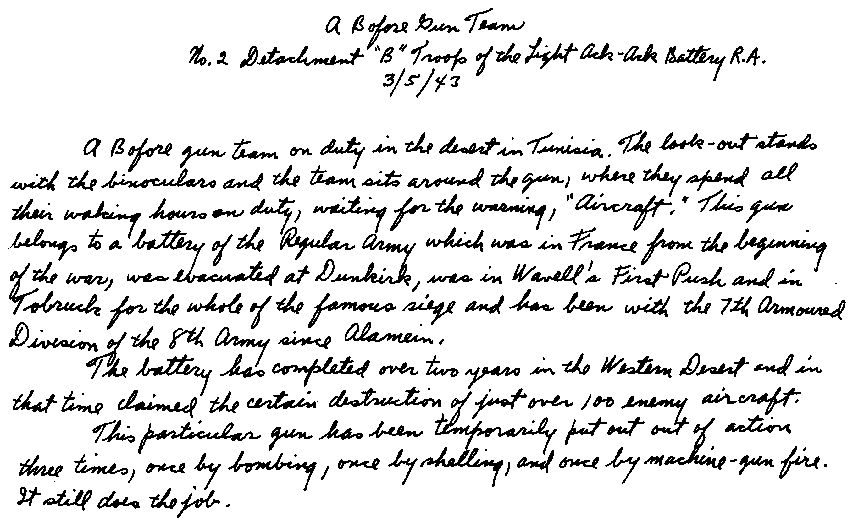 A Bofors Gun Team
No. 2 Detachment "B" Troops of the Light Ack-Ack Battery R.A.
3/5/43
A Bofors gun team on duty in the desert in Tunisia. The look-out stands
with the binoculars and the team sits around the gun, where they spend all
their waking hours on duty, waiting for the warning, "Aircraft." This gun
belongs to a battery of the Regular Army which was in France from the beginning
of the war, was evacuated at Dunkirk, was in Wavell's First Push and in
Tobruck for the whole of the famous siege and has been with the 7th Armoured
Division of the 8th Army since Alamein.
The battery has completed over two years in the Western Desert and in
that time claimed the certain destruction of just over 100 enemy aircraft.
This particular gun has been temporarily put out out of action
three times, once by bombing, once by shelling, and once by machine-gun fire.
It still does the job.